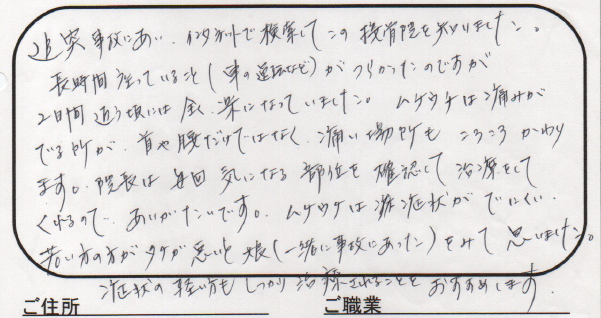 追突事故にあい、インターネットで検索してこの接骨院を知りました。
長時間座っていること(車の運転など)がつらかったのですが
2日間通う頃には全く楽になっていました。ムチウチは痛みが
でる所が、首や腰だけではなく、痛い場所もころころかわり
ます。院長は毎回気になる部位を確認して治療をして
くれるので、ありがたいです。ムチウチは症状がでにくい、
若い方の方がタチが悪いと娘(一緒に事故にあった)をみて思いました。
症状の軽い方もしっかり治療されることをおすすめします。
ご住所 ご職業